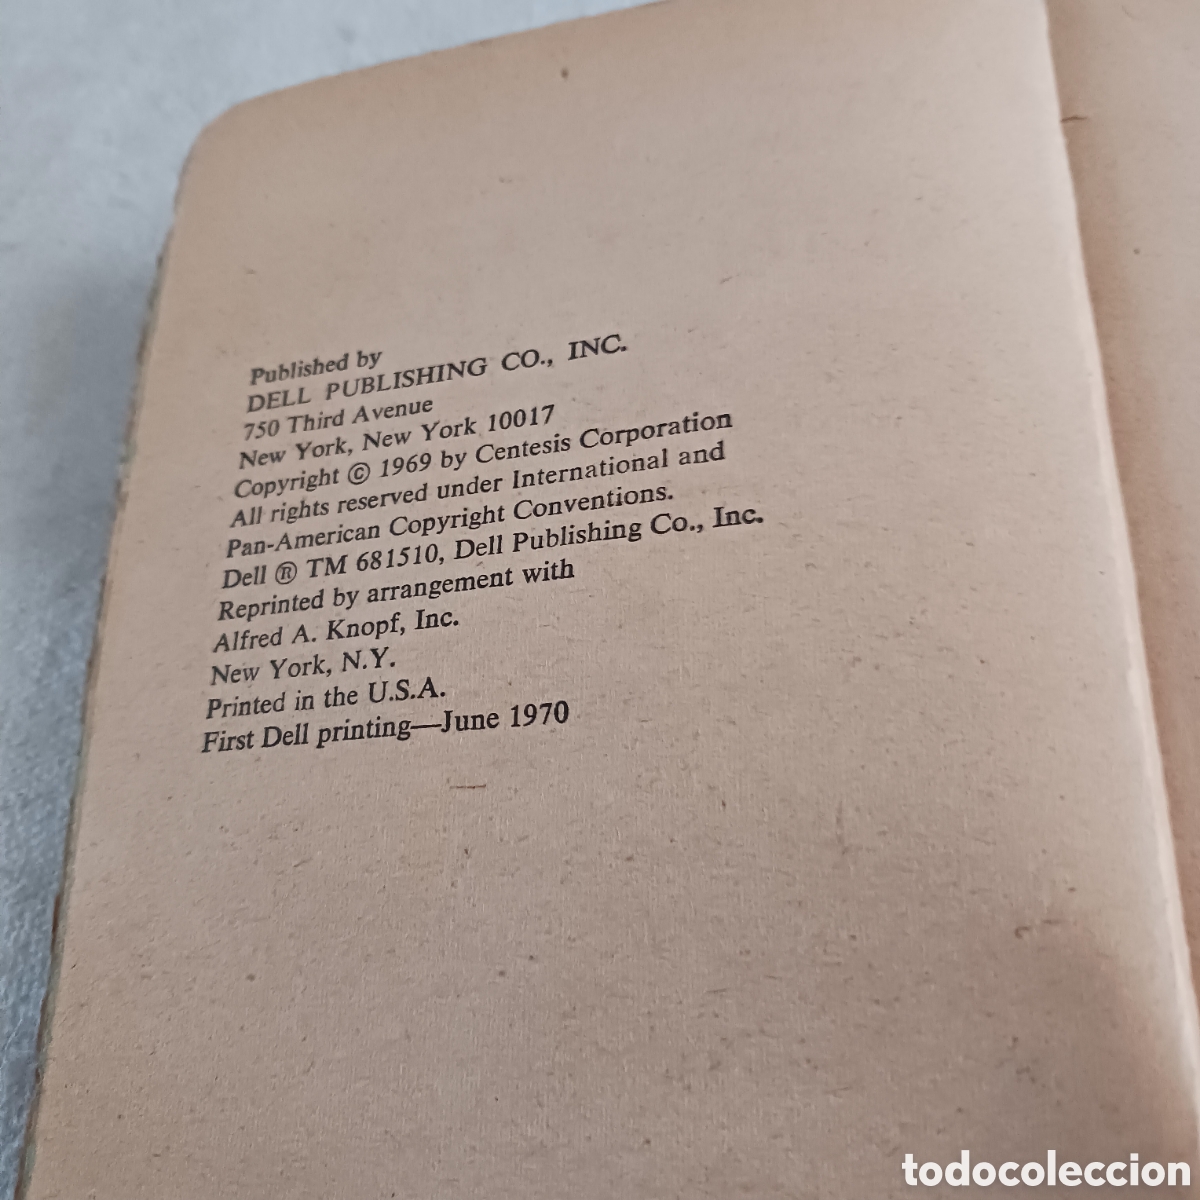 Published by
DELL PUBLISHING CO., INC.
750 Third Avenue
New York, New York 10017
Copyright © 1969 by Centesis Corporation
All rights reserved under International and
Pan-American Copyright Conventions.
Dell ® TM 681510, Dell Publishing Co., Inc.
Reprinted by arrangement with
Alfred A. Knopf, Inc.
New York, N.Y.
Printed in the U.S.A.
First Dell printing—June 1970
todocoleccion